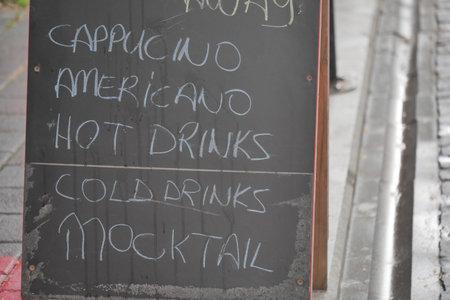 AWAY
CAPPUCINO
AMERICANO
HOT DRINKS
COLD DRINKS
MOCKTAIL